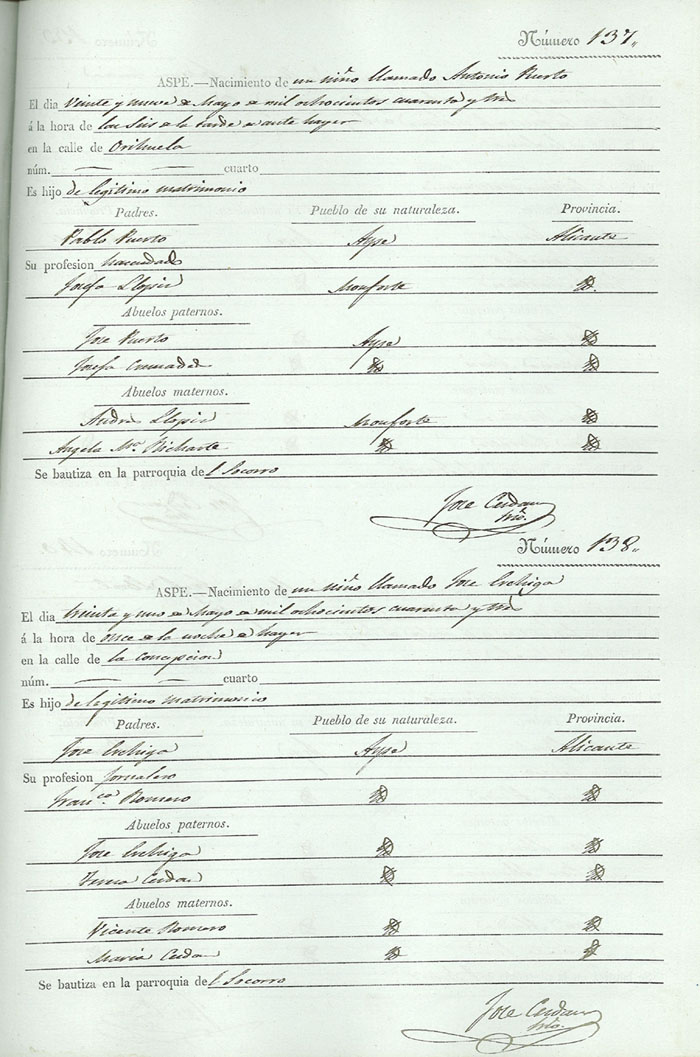 Número 137.
ASPE.—Nacimiento de un niño llamado Antonio Puerto
El dia veinte y nueve de Mayo de mil ochocientos cuarenta y tres
á la hora de las seis de la tarde de ante hayer
en la calle de Orihuela
núm. — — cuarto
Es hijo de legitimo matrimonio
Padres. Pueblo de su naturaleza. Provincia.
Pablo Puerto Aspe Alicante
Su profesion hacendado
Josefa Llopis Monforte
Abuelos paternos.
Jose Puerto Aspe
Josefa
Abuelos maternos.
Andres Llopis Monforte
Angela Ma. Richarte
Se bautiza en la parroquia del Socorro
Jose Cerdan
Srio.
Número 138.
ASPE.—Nacimiento de un niño llamado Jose
El dia treinta y uno de Mayo de mil ochocientos cuarenta y tres
á la hora de once de la noche de hayer
en la calle de la concepcion
núm. — — cuarto
Es hijo de legitimo matrimonio
Padres. Pueblo de su naturaleza. Provincia.
Jose Aspe Alicante
Su profesion Jornalero
Franco. Romero
Abuelos paternos.
Jose
Cerdan
Abuelos maternos.
Vicente Romero
Maria Cerdan
Se bautiza en la parroquia del Socorro
Jose Cerdan
Srio.